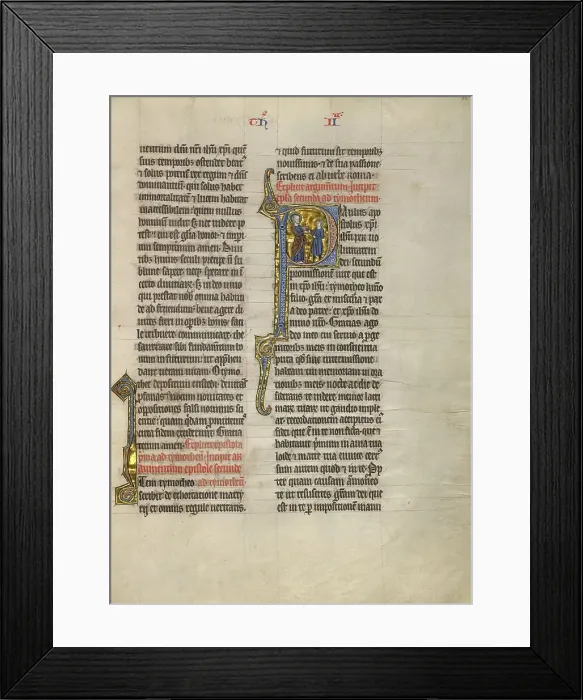 Th II
uentum dñi nři ihu xpi quē
suis temporibꝫ ostendet beat᷒
⁊ solus potens rex regum ⁊ dñs
dominantiū. qui solus habet
immortalitatē ⁊ lucem habitat
inaccessibilem. quem nullus
hominum uidit sꝫ nec uidere po
test. cui est gl̄a honor ⁊ imperi
um sempiternum amen. Diui
tibꝫ huius seculi precipe nō su
blime sapere. neqꝫ sperare in in
certo diuitiarꝫ. sꝫ in deo uiuo
qui prestat nob̄ omnia habun
de ad fruendum. bene agere di
uites fieri in opibꝫ bonis. faci
le tribuere communicare. the
saurizare sibi fundamentum bo
num in futurum. ut apprehen
dant ueram uitam. O tymo
thee depositum custodi. deuitans
pphanas uocum nouitates et
oppositiones falsi nominis sci
entie. quam quidam promittentes
circa fidem exciderunt. Gratia
tecum amen. Explicit epistola
prima ad tymotheū. Incipit ar
gumentum epistole secunde.
Item tymotheo ad tymotheū
scribit de exhortatione marty
rij et omnis regule ueritatis.
⁊ quid futurum sit temporibꝫ
nouissimis. ⁊ de sua passione.
scribens ei ab urbe roma.
Explicit argumentum. Incipit
epl̄a secunda ad tymotheum.
Paulus apo
stolus xp̄i
ihu per uo
luntatem
dei. secundū
promissionem uite que est
in xp̄o ihu: tymotheo kmo
filio. gr̄a et misericordia ⁊ pax
a deo patre: et xp̄o ihu do
mino nr̄o. Gratias ago
deo meo cui seruio a pge
nitoribꝫ meis in conscientia
pura. qd̄ sine intermissione
habeam tui memoriam in ora
tionibꝫ meis. nocte ac die de
siderans te uidere. memor lacri
marꝫ tuarꝫ ut gaudio implear
recordationem accipiens ei᷒
fidei que ē in te non ficta. que ⁊
habitauit primum in auia tua
loide ⁊ matre tua eunice. cert᷒
sum autem quod ⁊ in te. Pro
pter quam causam ammoneo
te ut resuscites gratiam dei que
est in te per impositionē manu